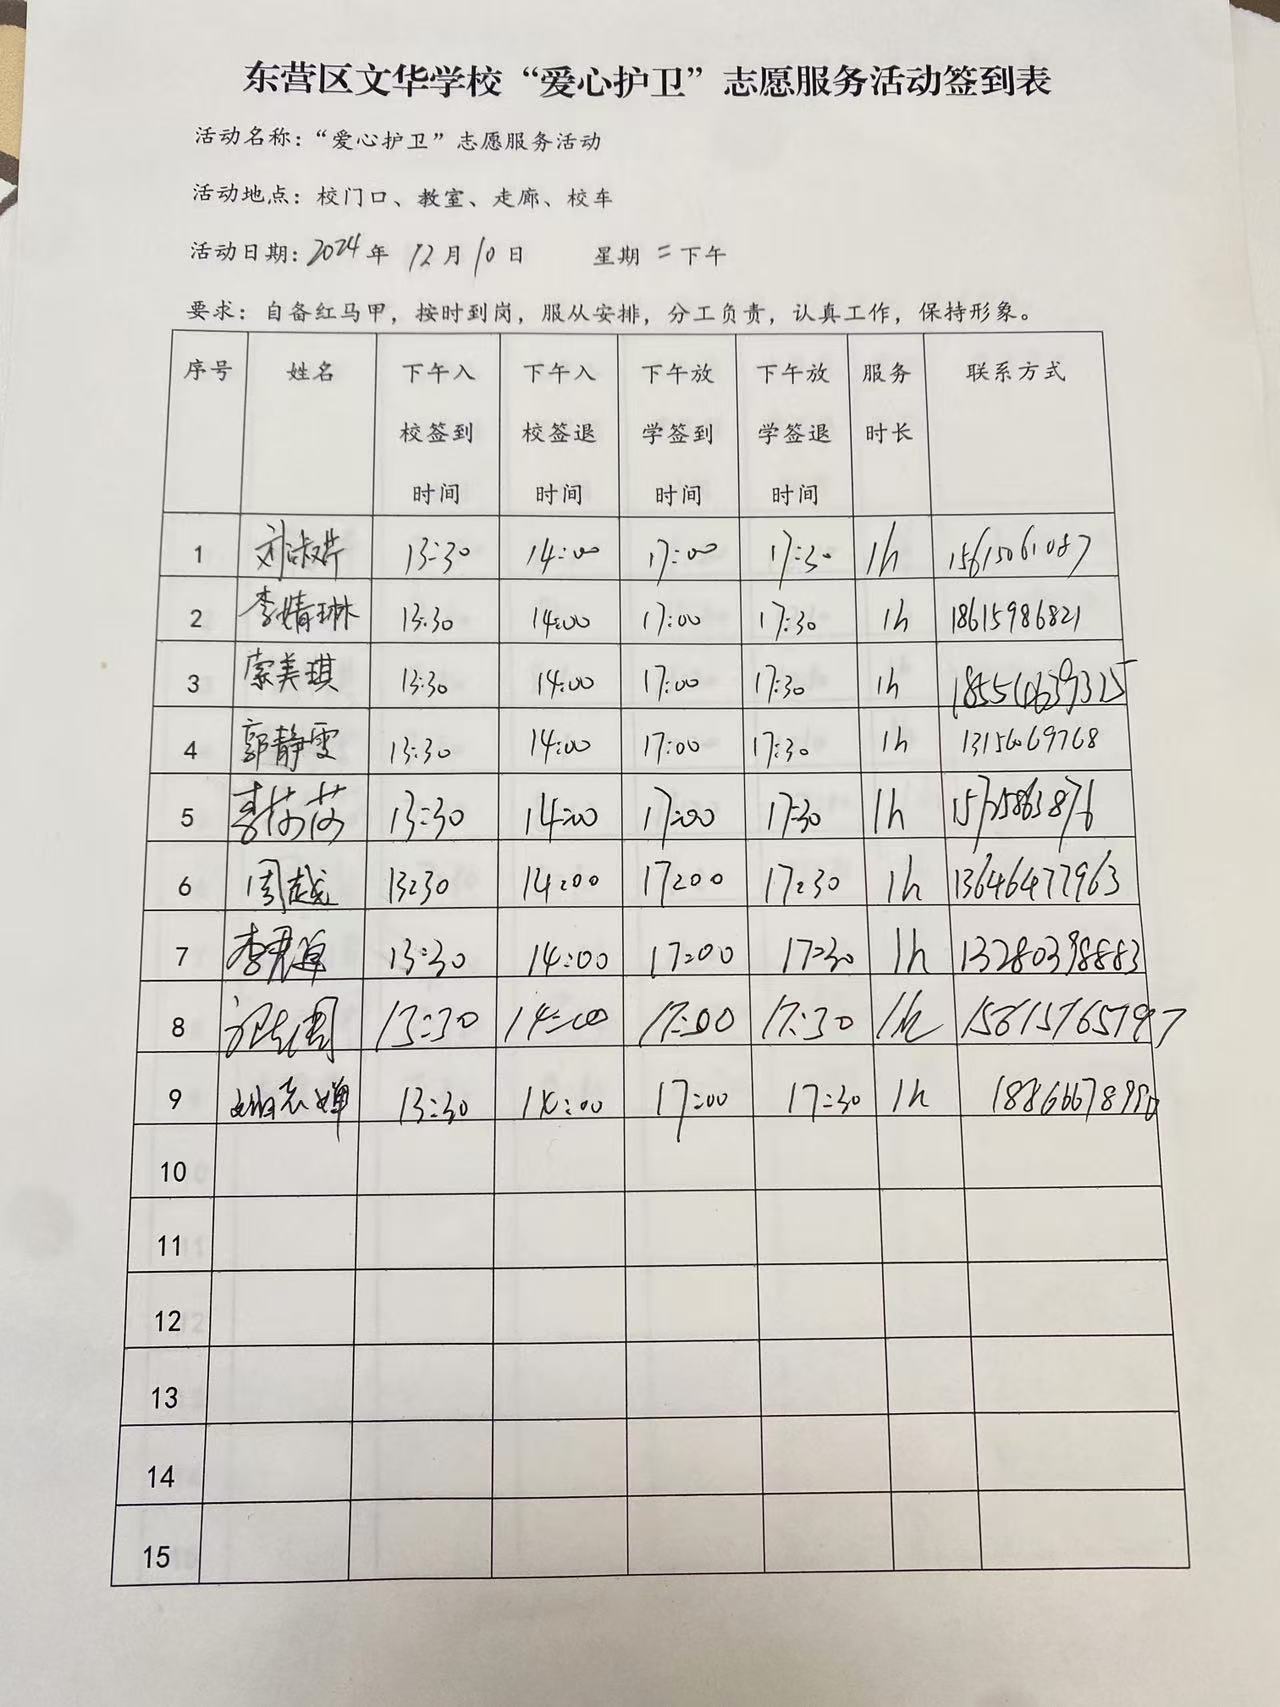 东营区文华学校“爱心护卫”志愿服务活动签到表
活动名称：“爱心护卫”志愿服务活动
活动地点：校门口、教室、走廊、校车
活动日期：2024年 12月10日 星期二下午
要求：自备红马甲，按时到岗，服从安排，分工负责，认真工作，保持形象。
序号 姓名 下午入校签到时间 下午入校签退时间 下午放学签到时间 下午放学签退时间 服务时长 联系方式
1 刘淑芹 13:30 14:00 17:00 17:30 1h 15615061087
2 李婧琳 13:30 14:00 17:00 17:30 1h 18615986821
3 索美琪 13:30 14:00 17:00 17:30 1h
4 郭静雯 13:30 14:00 17:00 17:30 1h
5 李莎莎 13:30 14:00 17:00 17:30 1h 15725863876
6 周越 13:30 14:00 17:00 17:30 1h 13646477963
7 13:30 14:00 17:00 17:30 1h 13280398883
8 13:30 14:00 17:00 17:30 1h 15615765797
9 13:30 14:00 17:00 17:30 1h
10
11
12
13
14
15